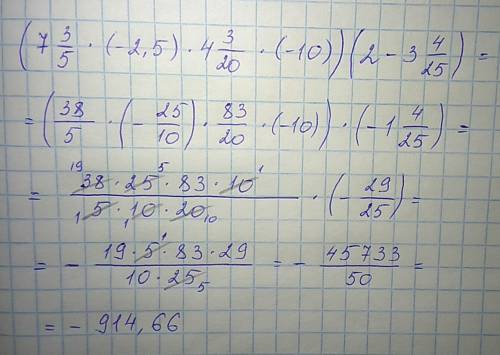 (7 3/5 · (-2,5) · 4 3/20 · (-10)) (2 - 3 4/25) =
= (38/5 · (- 25/10) · 83/20 · (-10)) · (-1 4/25) =
= 19 38 · 25 5 · 83 · 10 1 / 1 5 · 10 1 · 20 10 · (- 29/25) =
= - 19 · 5 1 · 83 · 29 / 10 · 25 5 = - 45733/50 =
= - 914,66